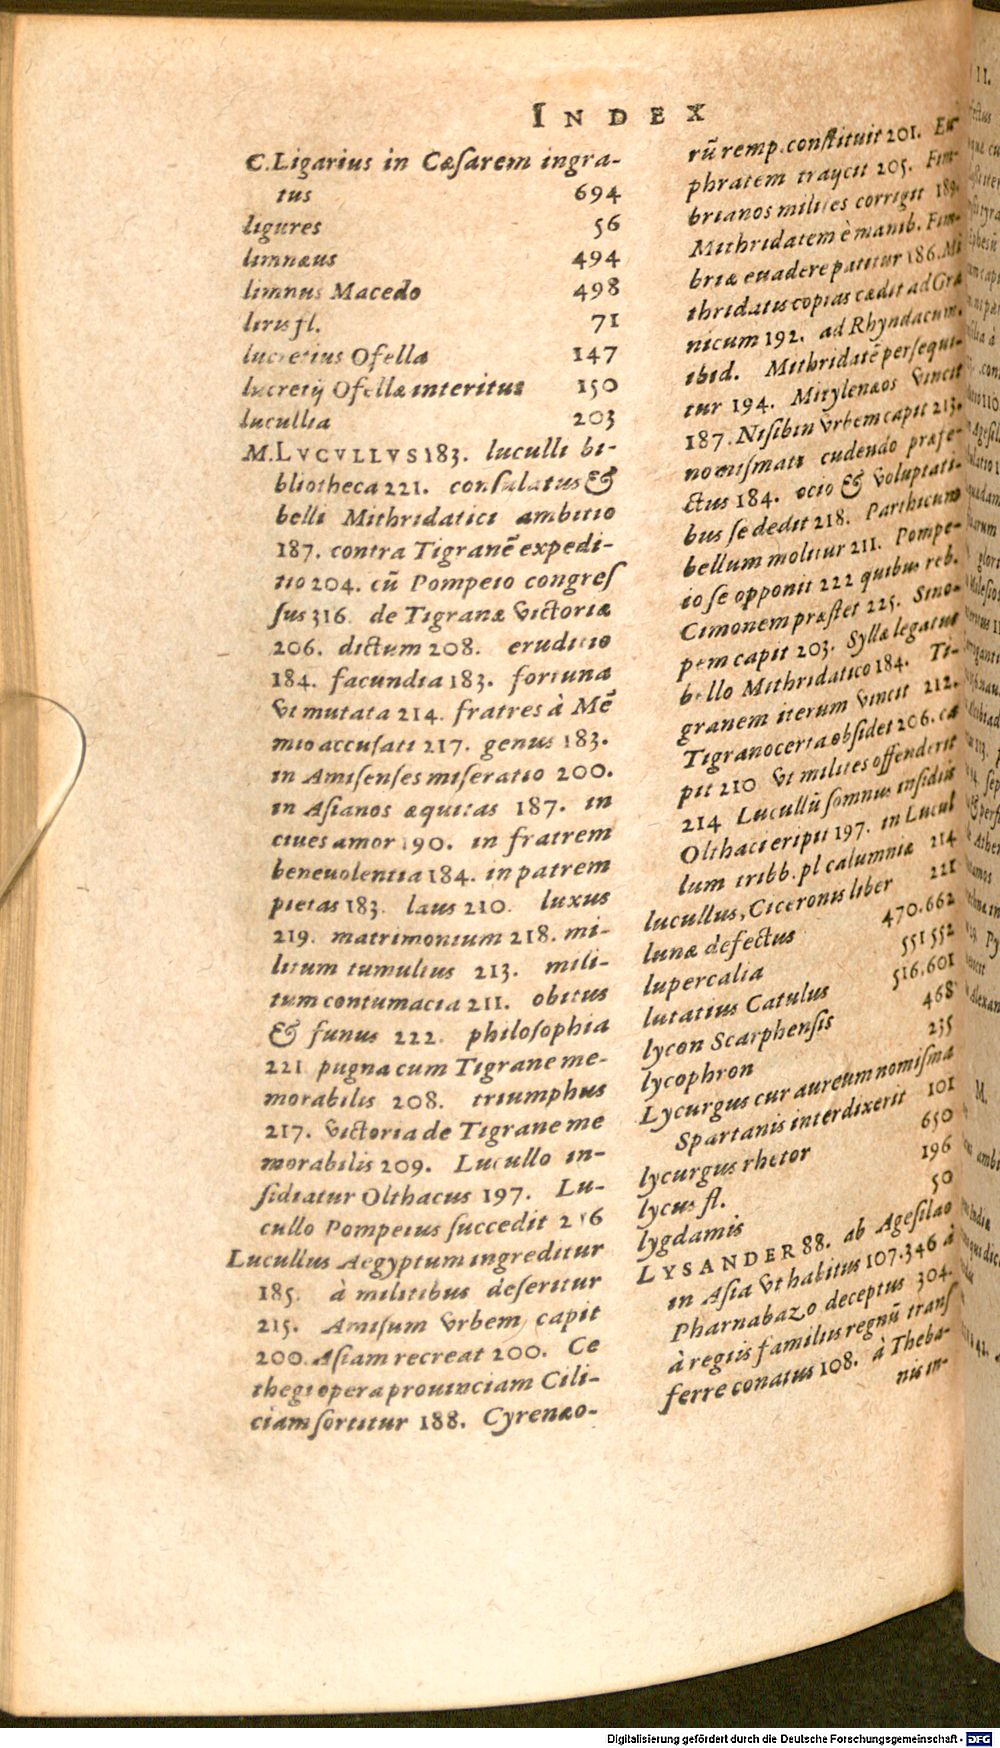 INDEX
C. Ligarius in Cæsarem ingra-
tus 694
ligures 56
limnæus 494
limnus Macedo 498
liris fl. 71
lucretius Ofella 147
lucretij Ofellæ interitus 150
lucullia 203
M. LVCVLLVS 183. luculli bi-
bliotheca 221. consulatus &
belli Mithridatici ambitio
187. contra Tigranē expedi-
tio 204. cū Pompeio congres
sus 316. de Tigranæ victoria
206. dictum 208. eruditio
184. facundia 183. fortuna
vt mutata 214. fratres à Mē
mio accusati 217. genus 183.
in Amisenses miseratio 200.
in Asianos æquitas 187. in
ciues amor 190. in fratrem
beneuolentia 184. in patrem
pietas 183. laus 210. luxus
219. matrimonium 218. mi-
litum tumultus 213. mili-
tum contumacia 211. obitus
& funus 222. philosophia
221 pugna cum Tigrane me-
morabilis 208. triumphus
217. victoria de Tigrane me
morabilis 209. Lucullo in-
sidiatur Olthacus 197. Lu-
cullo Pompeius succedit 216
Lucullus Aegyptum ingreditur
185. à militibus deseritur
215. Amisum vrbem capit
200. Asiam recreat 200. Ce
thegi opera prouinciam Cili-
ciam sortitur 188. Cyrenæo-
rū remp. constituit 201. Eu
phratem traycit 205. Fim-
brianos milites corrigit 189.
Mithridatem è manib. Fim-
briæ euadere patitur 186. Mi
thridatis copias cædit ad Gra
nicum 192. ad Rhyndacum.
ibid. Mithridatē persequi-
tur 194. Mitylenæos vincit
187. Nisibin vrbem capit 213.
nomismati cudendo præfe-
ctus 184. ocio & voluptati-
bus se dedit 218. Parthicum
bellum molitur 211. Pompe-
io se opponit 222 quibus reb.
Cimonem præstet 225. Sino-
pem capit 203. Syllæ legatus
bello Mithridatico 184. Ti-
granem iterum vincit 212.
Tigranocerta obsidet 206. ca
pit 210 vt milites offenderit
214 Lucullū somnus insidiis
Olthaci eripit 197. in Lucul
lum tribb. pl calumniæ 214
lucullus, Ciceronis liber 221
lunæ defectus 470.662
lupercalia 551 552
lutatius Catulus 516.601
lycon Scarphensis 468
lycophron 235
Lycurgus cur aureum nomisma
Spartanis interdixerit 101
lycurgus rhetor 650
lycus fl. 196
lygdamis 50
LYSANDER 88. ab Agesilao
in Asia vt habitus 107.346 à
Pharnabazo deceptus 304.
à regiis familiis regnū trans
ferre conatus 108. à Theba-
nis in-
II.
M.
Digitalisierung gefördert durch die Deutsche Forschungsgemeinschaft - DFG